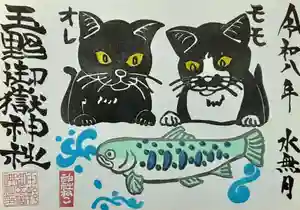 令和八年 水無月
モモ
オレ
玉野御嶽神社